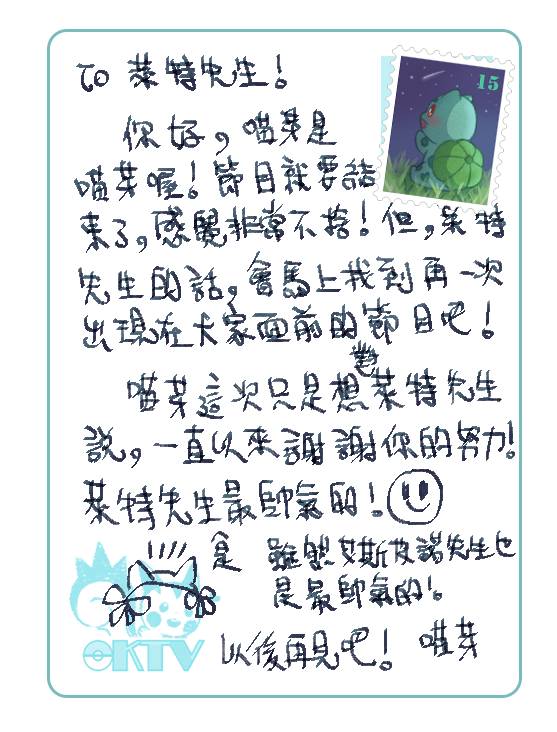 To 萊特先生！
15
你好，喵芽是
喵芽喔！節目就要結
束了，感覺非常不捨！但，萊特
先生的話，會馬上找到再一次
出現在大家面前的節目吧！
喵芽這次只是想對萊特先生
說，一直以來謝謝你的努力！
萊特先生是最帥氣的！
雖然艾斯皮諾先生也
是最帥氣的！
OKTV
以後再見吧！ 喵芽